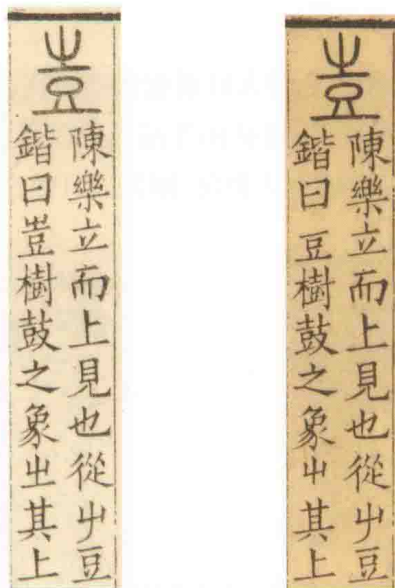 壴
陳樂立而上見也從屮豆
鍇曰豈樹鼓之象㞢其上
壴
陳樂立而上見也從屮豆
鍇曰豆樹鼓之象屮其上